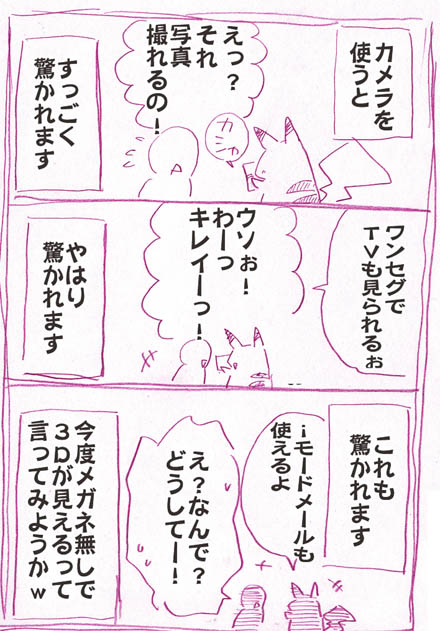 カメラを
使うと
えっ？
それ
写真
撮れるの！
カシャ
すっごく
驚かれます
ワンセグで
TVも見られるぉ
ウソぉ！
わーっ
キレイーっ！
やはり
驚かれます
これも
驚かれます
iモードメールも
使えるよ
え？なんで？
どうしてー！
今度メガネ無しで
3Dが見えるって
言ってみようかw